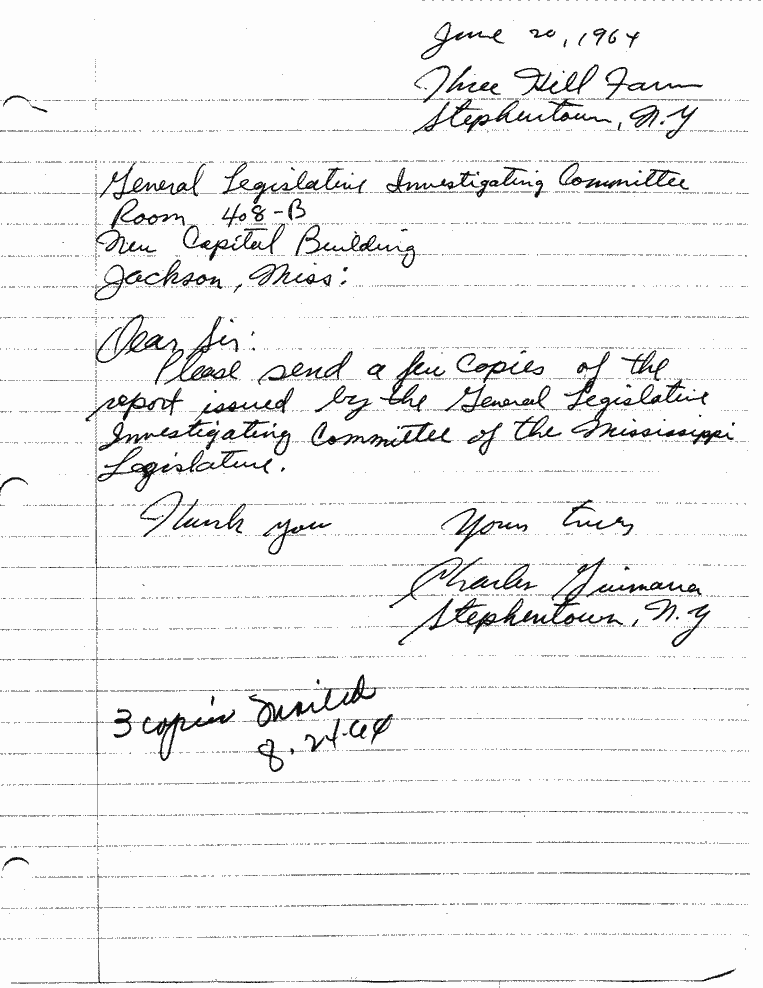 June 20, 1964
Three Hill Farm
Stephentown, N.Y
General Legislative Investigating Committee
Room 408-B
New Capital Building
Jackson, Miss:
Dear Sir:
Please send a few copies of the
report issued by the General Legislative
Investigating Committee of the Mississippi
Legislature.
Thank you Yours truly
Charles
Stephentown, N.Y
3 copies mailed
8.24.64